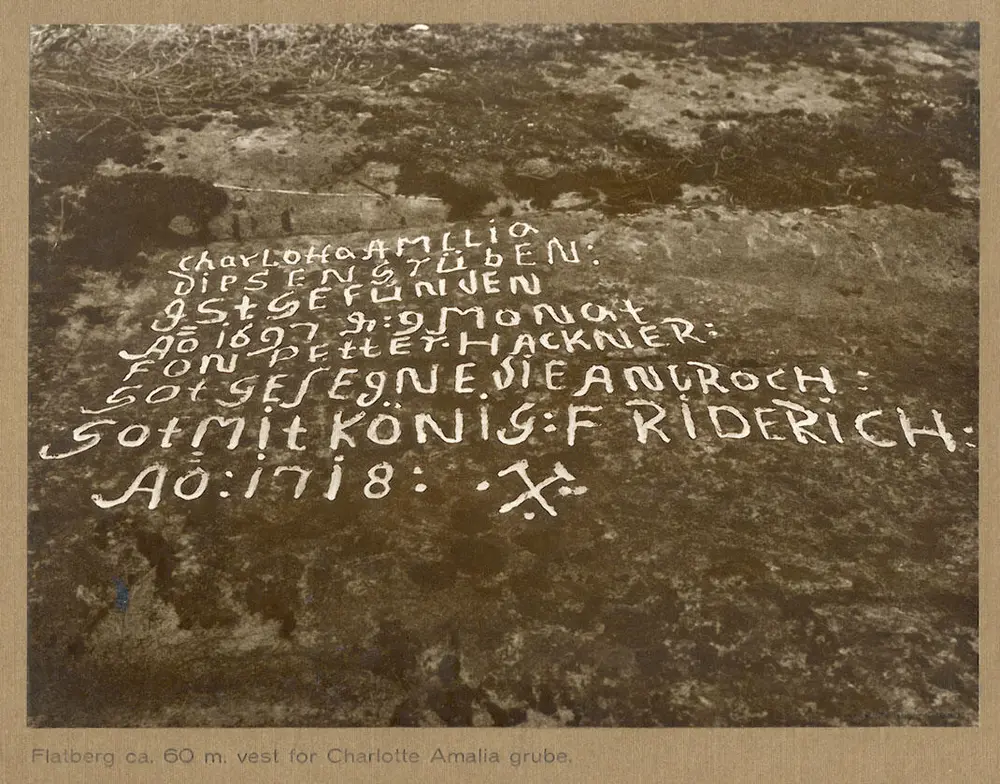 CharLOttA AMILIA
DiPSENGrÜbEN:
ISt GEFUNDEN
AÖ 1697 N:9 MONAt
FON PEttER HACKNER:
GOt GESEGNE DIE ANBROCH:
GOt Mit KÖNIG: FRIDERICH:
AÖ: 1718:
Flatberg ca. 60 m. vest for Charlotte Amalia grube.